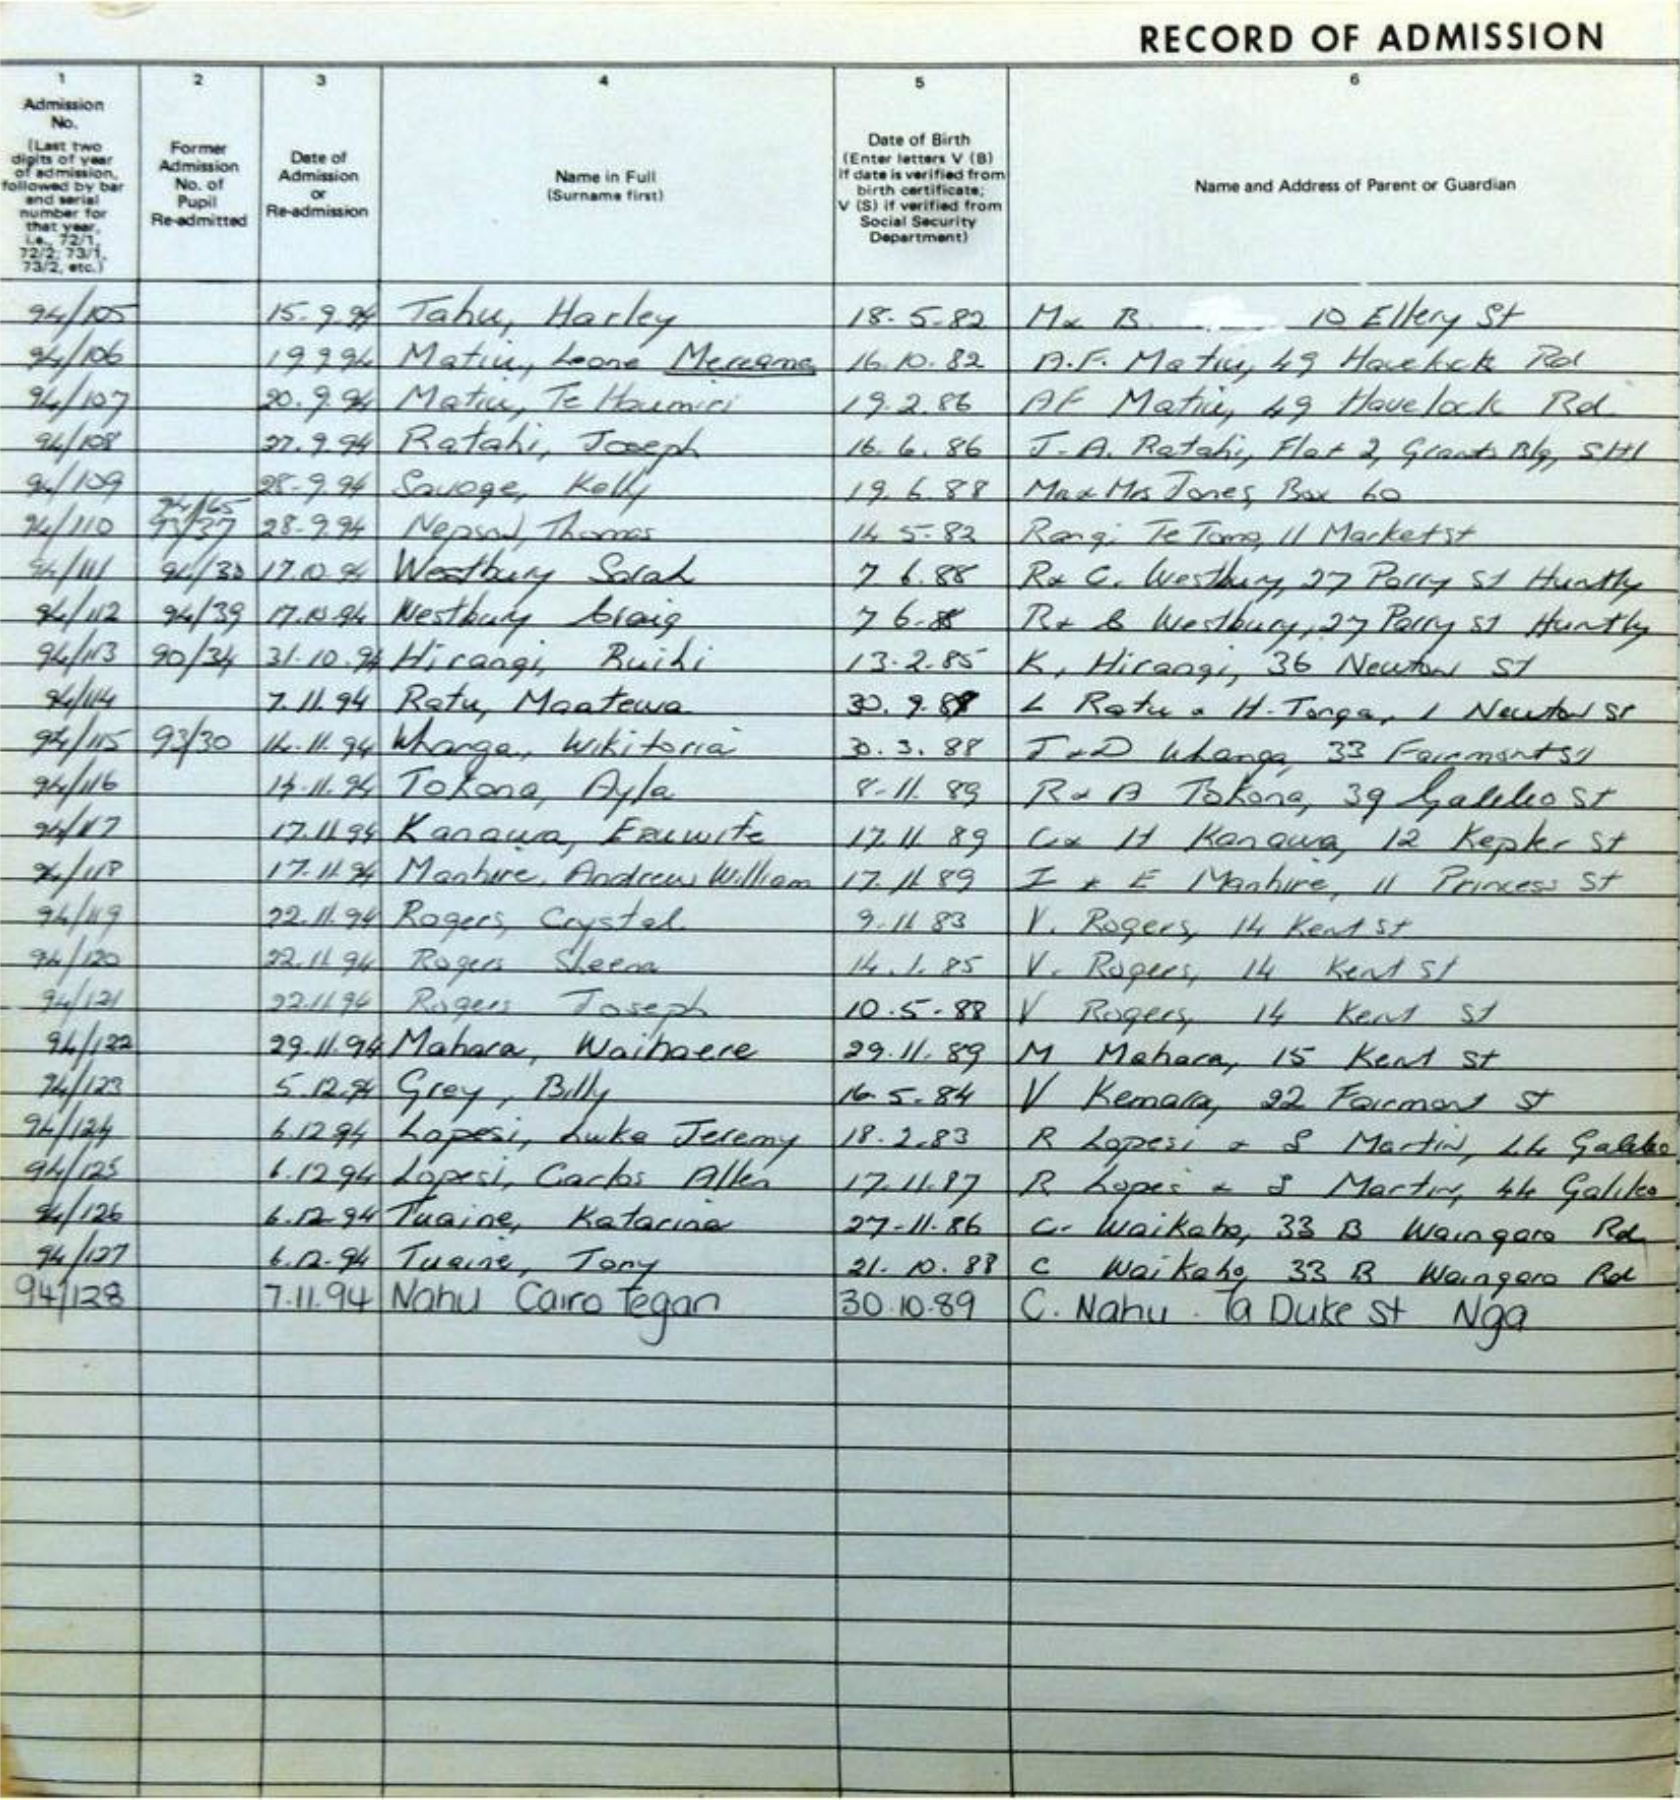 RECORD OF ADMISSION
1 2 3 4 5 6
Admission No. (Last two digits of year of admission, followed by bar and serial number for that year, i.e., 72/1, 72/2, 73/1, 73/2, etc.)
Former Admission No. of Pupil Re-admitted
Date of Admission or Re-admission
Name in Full (Surname first)
Date of Birth (Enter letters V (B) if date is verified from birth certificate; V (S) if verified from Social Security Department)
Name and Address of Parent or Guardian
94/105 15.9.94 Tahu, Harley 18.5.82 M & B. 10 Ellery St
94/106 19.9.94 Matiu, Leone Mereama 16.10.82 A.F. Matiu, 49 Havelock Rd
94/107 20.9.94 Matiu, Te Haumiri 19.2.86 AF Matiu, 49 Havelock Rd
94/108 27.9.94 Ratahi, Joseph 16.6.86 J.A. Ratahi, Flat 2, Grants Blg, SH1
94/109 28.9.94 Savage, Kelly 19.6.88 Mr & Mrs Jones, Box 60
94/110 94/65 93/37 28.9.94 Thomas 14.5.82 Rangi Te Tomo, 11 Market st
94/111 94/38 17.10.94 Westbury Sarah 7 6.88 R & C. Westbury, 27 Parry St Huntly
94/112 94/39 17.10.94 Westbury Craig 7 6.88 R & Westbury, 27 Parry St Huntly
94/113 90/34 31.10.94 Hirangi, Ruihi 13.2.85 K. Hirangi, 36 Newton St
94/114 7.11.94 Ratu, Maatewa 30.9.89 L Ratu & H. Tonga, 1 Newton St
94/115 93/30 14.11.94 Whanga, Wikitoria 30.3.88 T & D Whanga, 33 Fairmont St
94/116 14.11.94 Tokona, Ayla 8.11.89 R & A Tokona, 39 Galileo St
94/117 17.11.94 Kanawa, 17.11.89 C & H Kanawa, 12 Kepler St
94/118 17.11.94 Manhire, Andrew William 17.11.89 I & E Manhire, 11 Princess St
94/119 22.11.94 Rogers, Crystal. 9.11.83 V. Rogers, 14 Kent St
94/120 22.11.94 Rogers Sleena 14.1.85 V. Rogers, 14 Kent St
94/121 22.11.94 Rogers Joseph 10.5.88 V Rogers, 14 Kent St
94/122 29.11.94 Mahara, Waibaere 29.11.89 M Mahara, 15 Kent St
94/123 5.12.94 Grey, Billy 16.5.84 V Kemara, 22 Fairmont St
94/124 6.12.94 Lopesi, Luke Jeremy 18.2.83 R Lopesi & S Martin, 44 Galileo
94/125 6.12.94 Lopesi, Carlos Allen 17.11.87 R Lopesi & S Martin, 44 Galileo
94/126 6.12.94 Tuaine, Katarina 27.11.86 C. Waikaho, 33 B Waingaro Rd
94/127 6.12.94 Tuaine, Tony 21.10.88 C Waikaho, 33 B Waingaro Rd
94/128 7.11.94 Nahu Cairo Tegan 30.10.89 C. Nahu. Duke St Nga